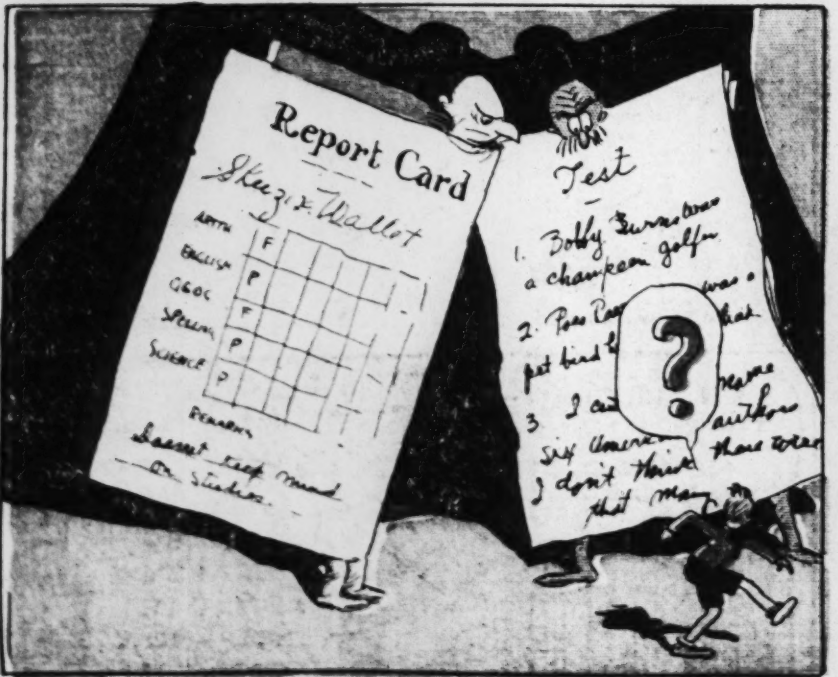 Report Card
Skeezix Wallet
ARITH F
ENGLISH P
GEOG F
SPELLING P
SCIENCE P
REMARKS
Doesnt keep mind
on studies
Test
1. Bobby Burns was
a champeen golfer
2. was a
pet bird
3. I name
six authors
I don't think there were
that many
?